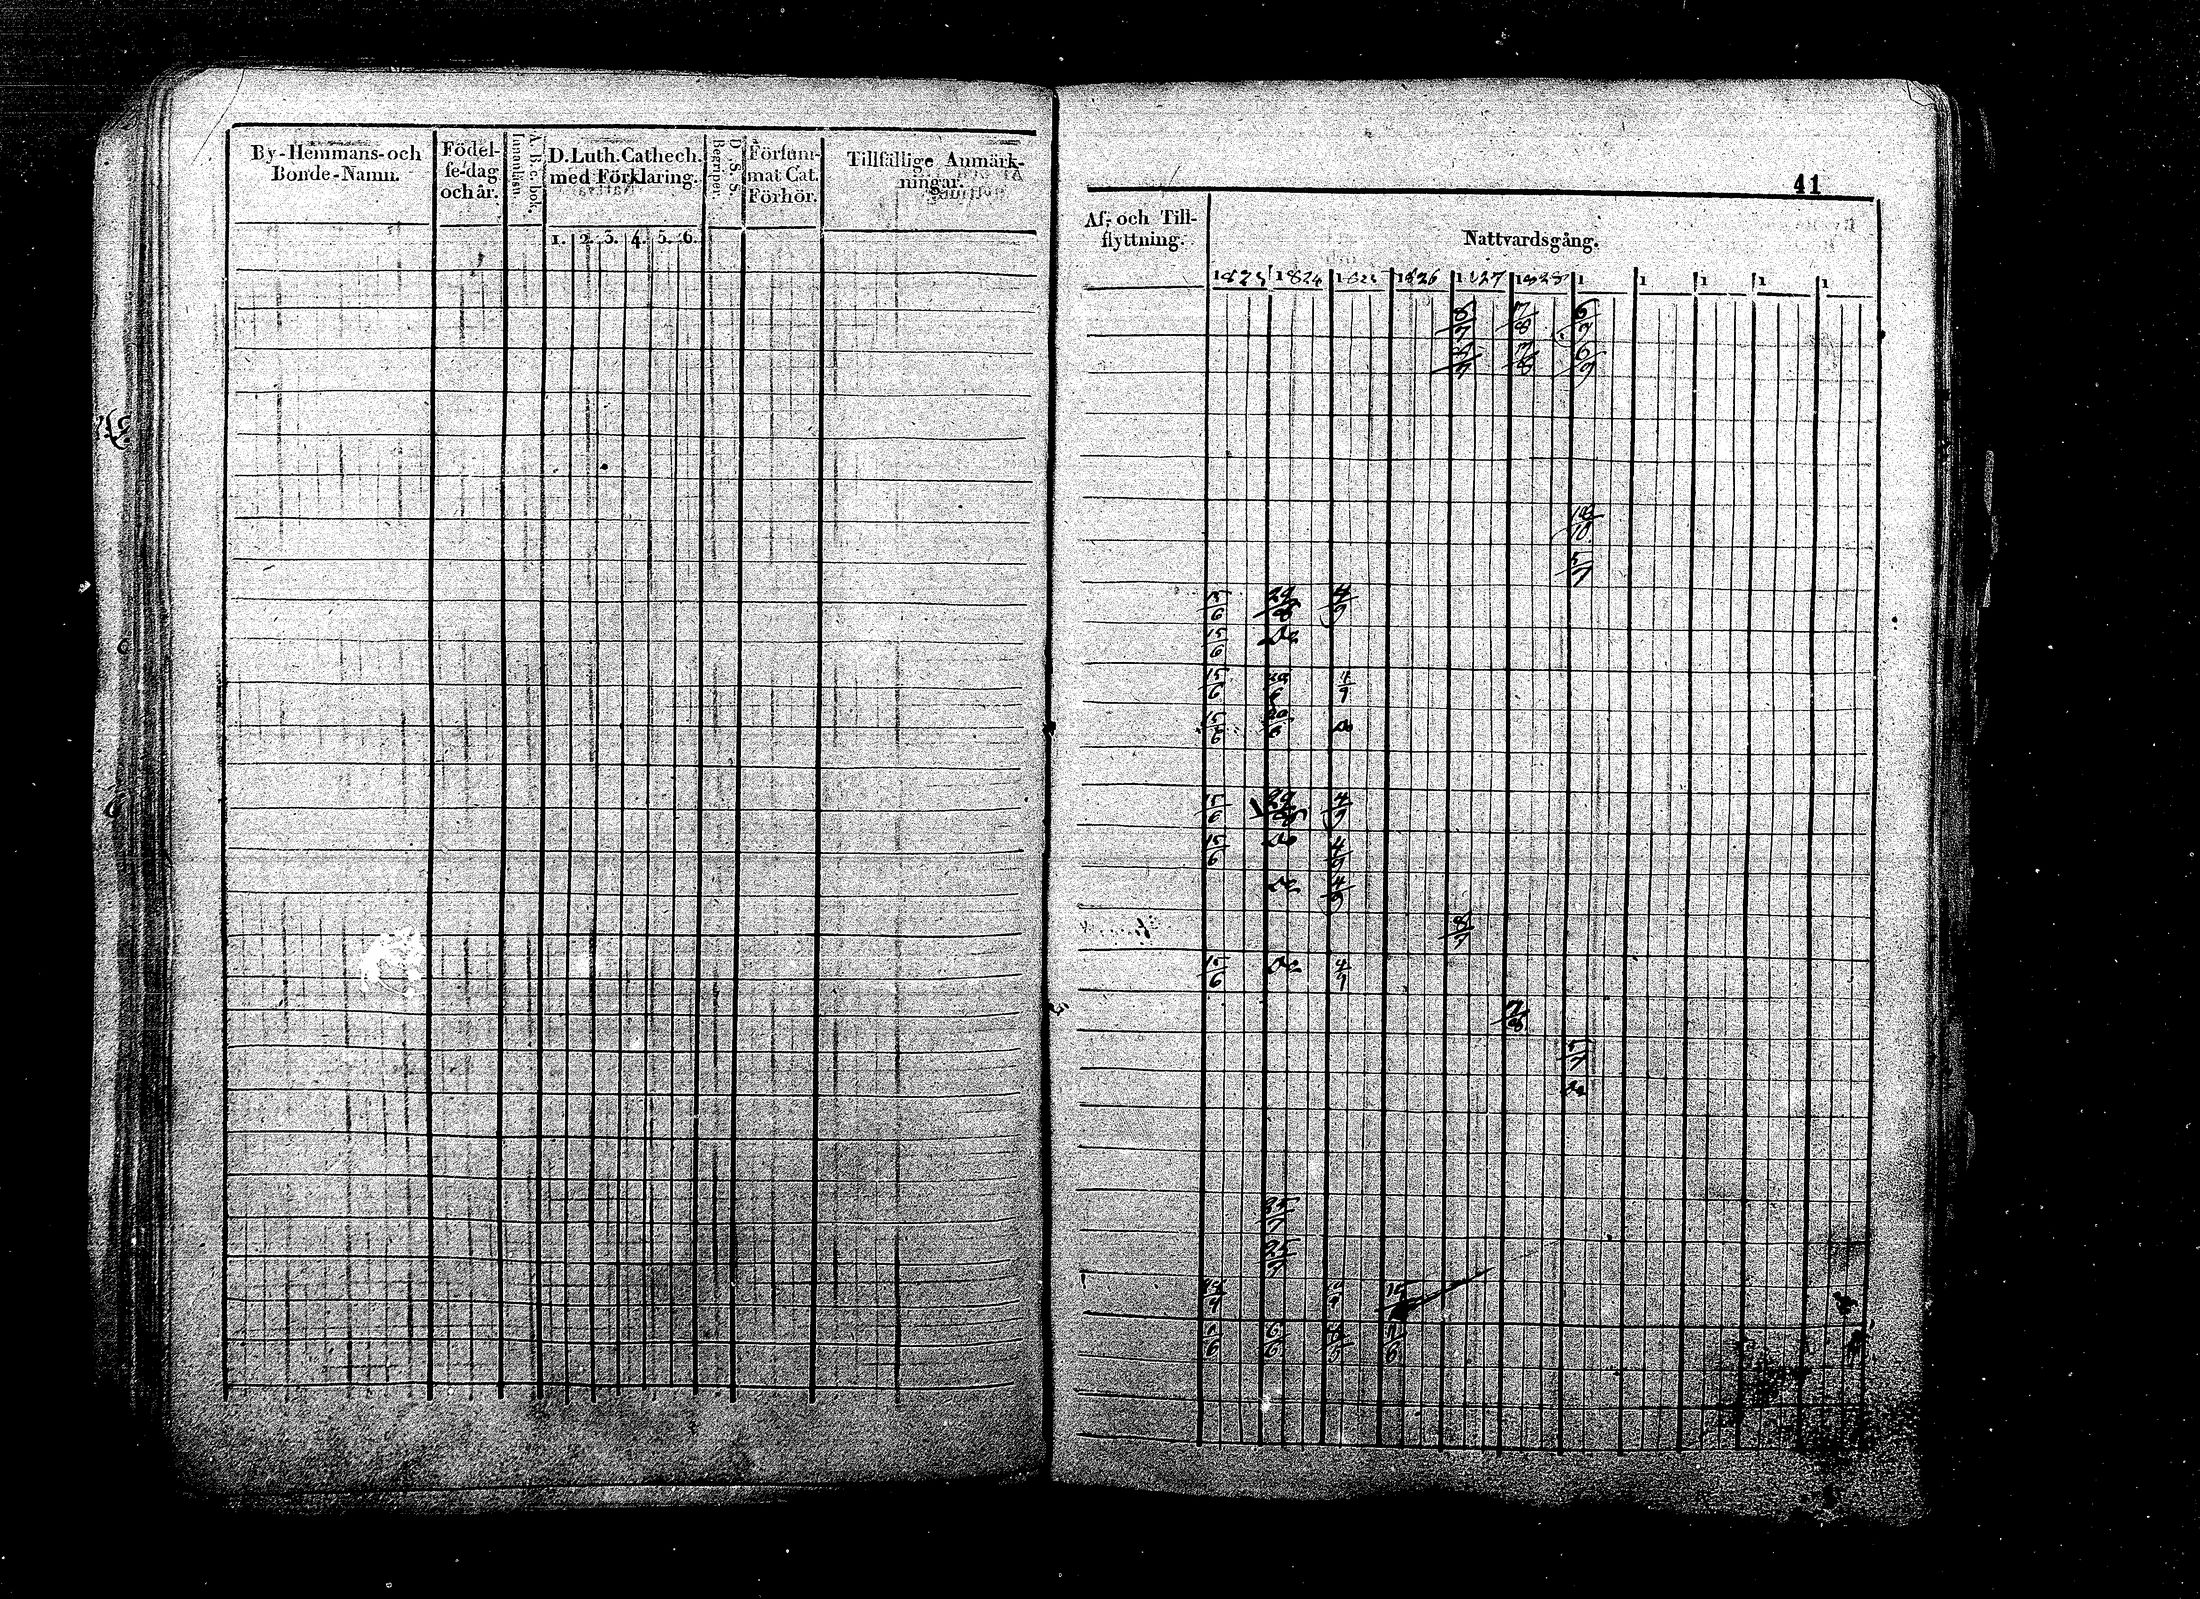 By-Hemmans-och
Bonde-Namn.
Födel-
se-dag
och år.
A. B. c. bok.
Innantläsn.
D. Luth. Cathech.
med Förklaring.
1. 2. 3. 4. 5. 6.
D. S. S.
Begriper.
Försum-
mat Cat.
Förhör.
Tillfällige Anmärk-
ningar.
41
Af- och Till-
flyttning.
Nattvardsgång.
1823 1824 1825 1826 1827 1828 1 1 1 1 1
8/7 7/8 6/9
8/7 7/8 6/9
18/10
5/7
15/6 29/8 4/9
15/6 Do
15/6 4/9
15/6 20/6 Do
15/6 29/8 4/9
15/6 Do 4/9
Do 4/9
8/7
15/6 Do 4/9
7/8
5/7
Do
25/7
25/7
6/6